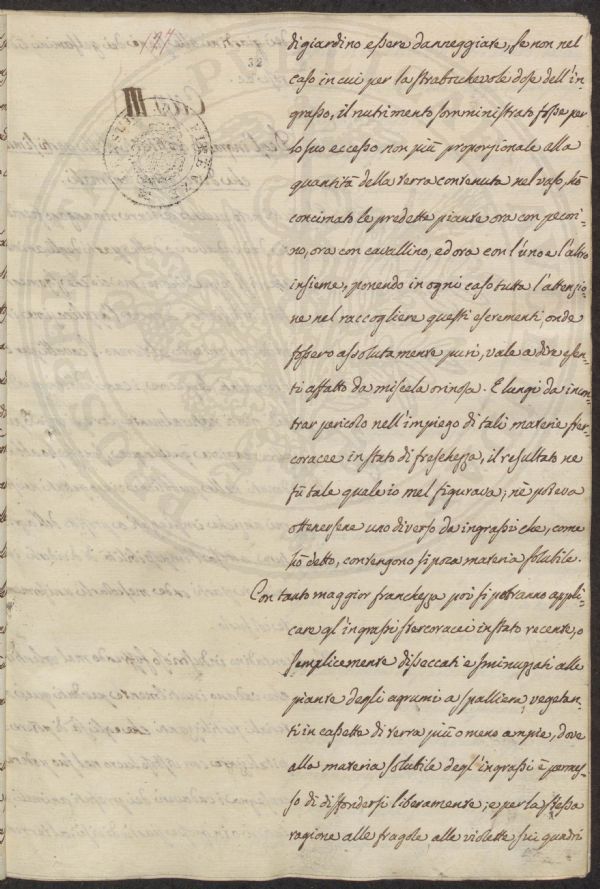 124
32
di giardino essere danneggiate, se non nel
caso in cui per la strabocchevole dose dell'in-
grasso, il nutrimento somministrato fosse per
lo suo eccesso non più proporzionale alla
quantità della terra contenuta nel vaso, hò
concimato le predette piante ora con pecori-
no, ora con cavallino, ed ora con l'uno e l'altro
insieme, ponendo in ogni caso tutta l'attenzio-
ne nel raccogliere questi escrementi, onde
fossero assolutamente puri, vale a dire esen-
ti affatto da miscela orinosa. E lungi da incon-
trar pericolo nell'impiego di tali materie ster-
coracee in stato di freschezza, il resultato ne
fù tale quale io mel figurava; nè poteva
ottenersene uno diverso da ingrassi che, come
hò detto, contengono sì poca materia solubile.
Con tanto maggior franchezza poi si potranno appli-
care gl'ingrassi stercoracei in stato recente, o
semplicemente disseccati e sminuzzati alle
piante degli agrumi a spalliera, vegetan-
ti in cassette di terra più o meno ampie, dove
alla materia solubile degl'ingrassi è permes-
so di diffondersi liberamente; e per la stessa
ragione alle fragole alle violette sui quadri